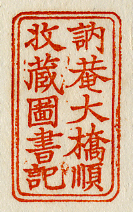 訥菴大橋順
收藏圖書記